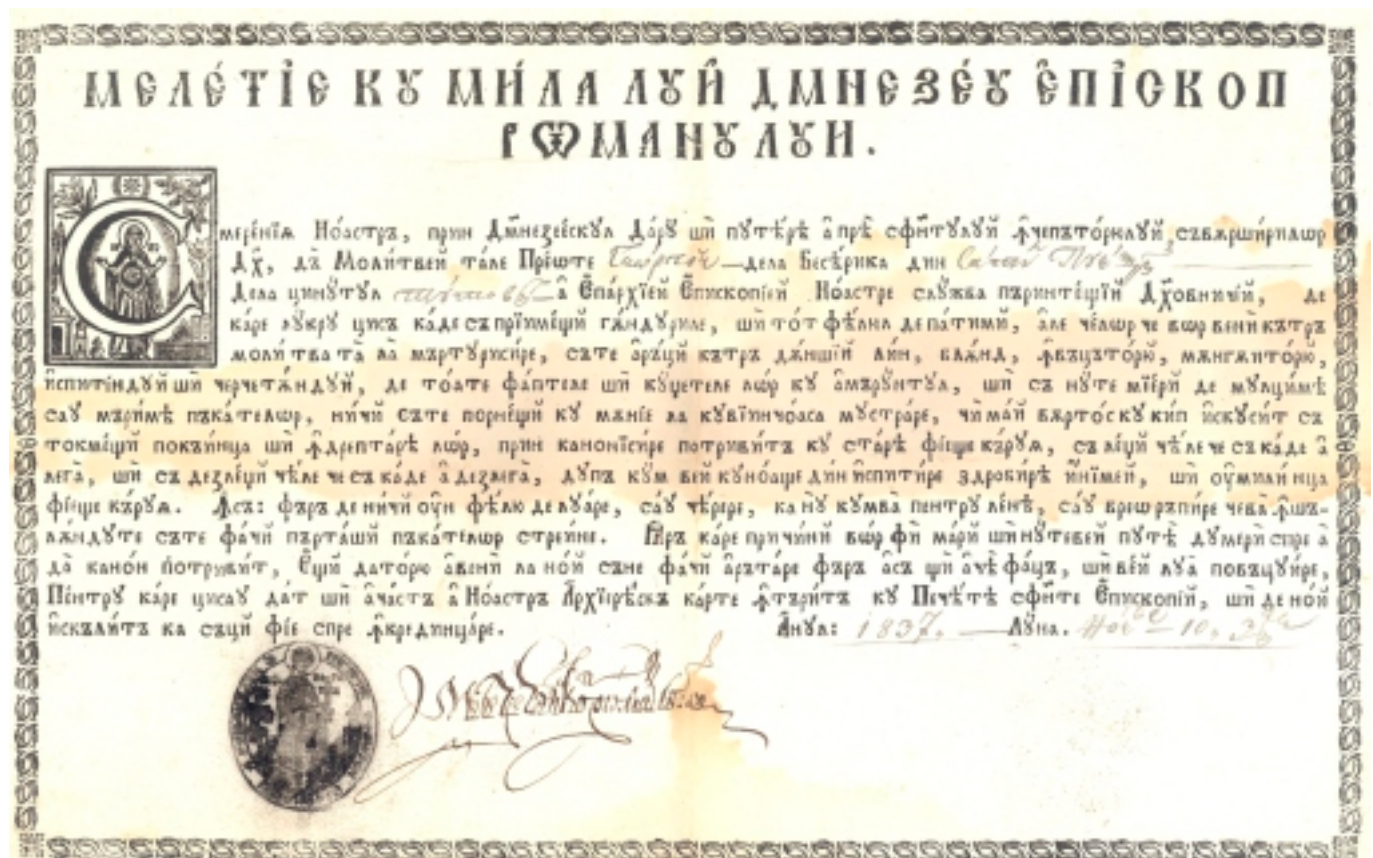 МЕЛЕ́ТЇЕ КꙊ МИ́ЛА ЛꙊЙ ДМНЕЗЕ́Ꙋ Е҆ПЇСКОП
РѠМАНꙊЛꙊИ.
Смере́нїѧ Ноа́стръ, прин Дм҃незее́скꙋл Да́рꙋ ши пꙋтѣ́рѣ а҆ прѣ сфи́нтꙋлꙋй ꙟчепъто́рюлꙋй, съвѫрши́рилѡр
Дх҃, дъ Моли́твей та́ле Прео́те Гео́ргїе дела Бесѣ́рика дин Са́тꙋл
Дела цинꙋ́тꙋл а҆ Епа́рхїей Епископі́ей Ноа́стре слꙋ́жба пъринте́щїй Дх҃овничі́й, де
ка́ре лꙋ́крꙋ цисъ ка́де съ прїиме́щй гѫ́ндꙋриле, ши то́т фѣ́люл де па́тимй, а҆ле че́лѡр че вѡр вени́ кътръ
моли́тва та̀ ла мъртꙋриси́ре, съте а҆ръ́цй кътръ дѫ́ншїй ли́н, блѫ́нд, ꙟвъцъто́рю, мѫнгѫито́рю,
и҆спити́ндꙋй ши черчетѫ́ндꙋй, де тоа́те фа́птеле ши кꙋ́џетеле лѡр кꙋ а҆мъро́нтꙋл, ши съ нꙋ́те мїе́рй де мꙋлци́мѣ
са́ꙋ мъри́мѣ пъка́телѡр, ни́чй съте порне́щй кꙋ мѫні́е ла кꙋвїинчоа́са мꙋстра́ре, чи ма́й вѫрто́с кꙋ ки́п и҆скꙋси́т съ
токме́щй покъи́нца ши ꙟдрепта́рѣ лѡр, прин канониси́ре потриви́тъ кꙋ ста́рѣ фїеще кърꙋѧ, съ ле́џй чѣ́ле че съ ка́де а҆
лега̀, ши съ дезле́џй чѣ́ле че съ ка́де а҆ дезлега̀, дꙋпъ кꙋм ве́й кꙋноа́ще дин и҆спити́ре здроби́рѣ и҆ни́мей, ши оу҆мили́нца
фїеще кърꙋѧ. Ꙟ҆съ: фъръ де ни́чй оу҆н фѣ́лю де лꙋа́ре, са́ꙋ че́рере, ка нꙋ кꙋмва̀ пентрꙋ ле́не, са́ꙋ врео ръпи́ре чева̀ ꙟшъ-
лѫ́ндꙋте съте фа́чй пърта́ш пъка́телѡр стреи́не. Ꙗръ ка́ре при́чинй вѡр фи́ ма́рй ши нꙋ́тевей пꙋтѣ̀ дꙋмери́ спре а҆
да̀ кано́н потриви́т, Е҆щй дато́рю а҆вени́ ла но́й съне фа́чй а҆ръта́ре фъръ а҆съ ши а҆чѣ фа́цъ, ши ве́й лꙋа̀ повъцꙋи́ре,
Пе́нтрꙋ ка́ре цисаꙋ да́т ши а҆ча́стъ а҆ Ноа́стръ А҆рхїере́скъ ка́рте ꙟтъри́тъ кꙋ Пече́тѣ сфи́нте Епископі́й, ши де но́й
и҆скъли́тъ ка съцй фі́е спре ꙟкрединца́ре. А҆нꙋл: 1837. Лꙋна. 10.